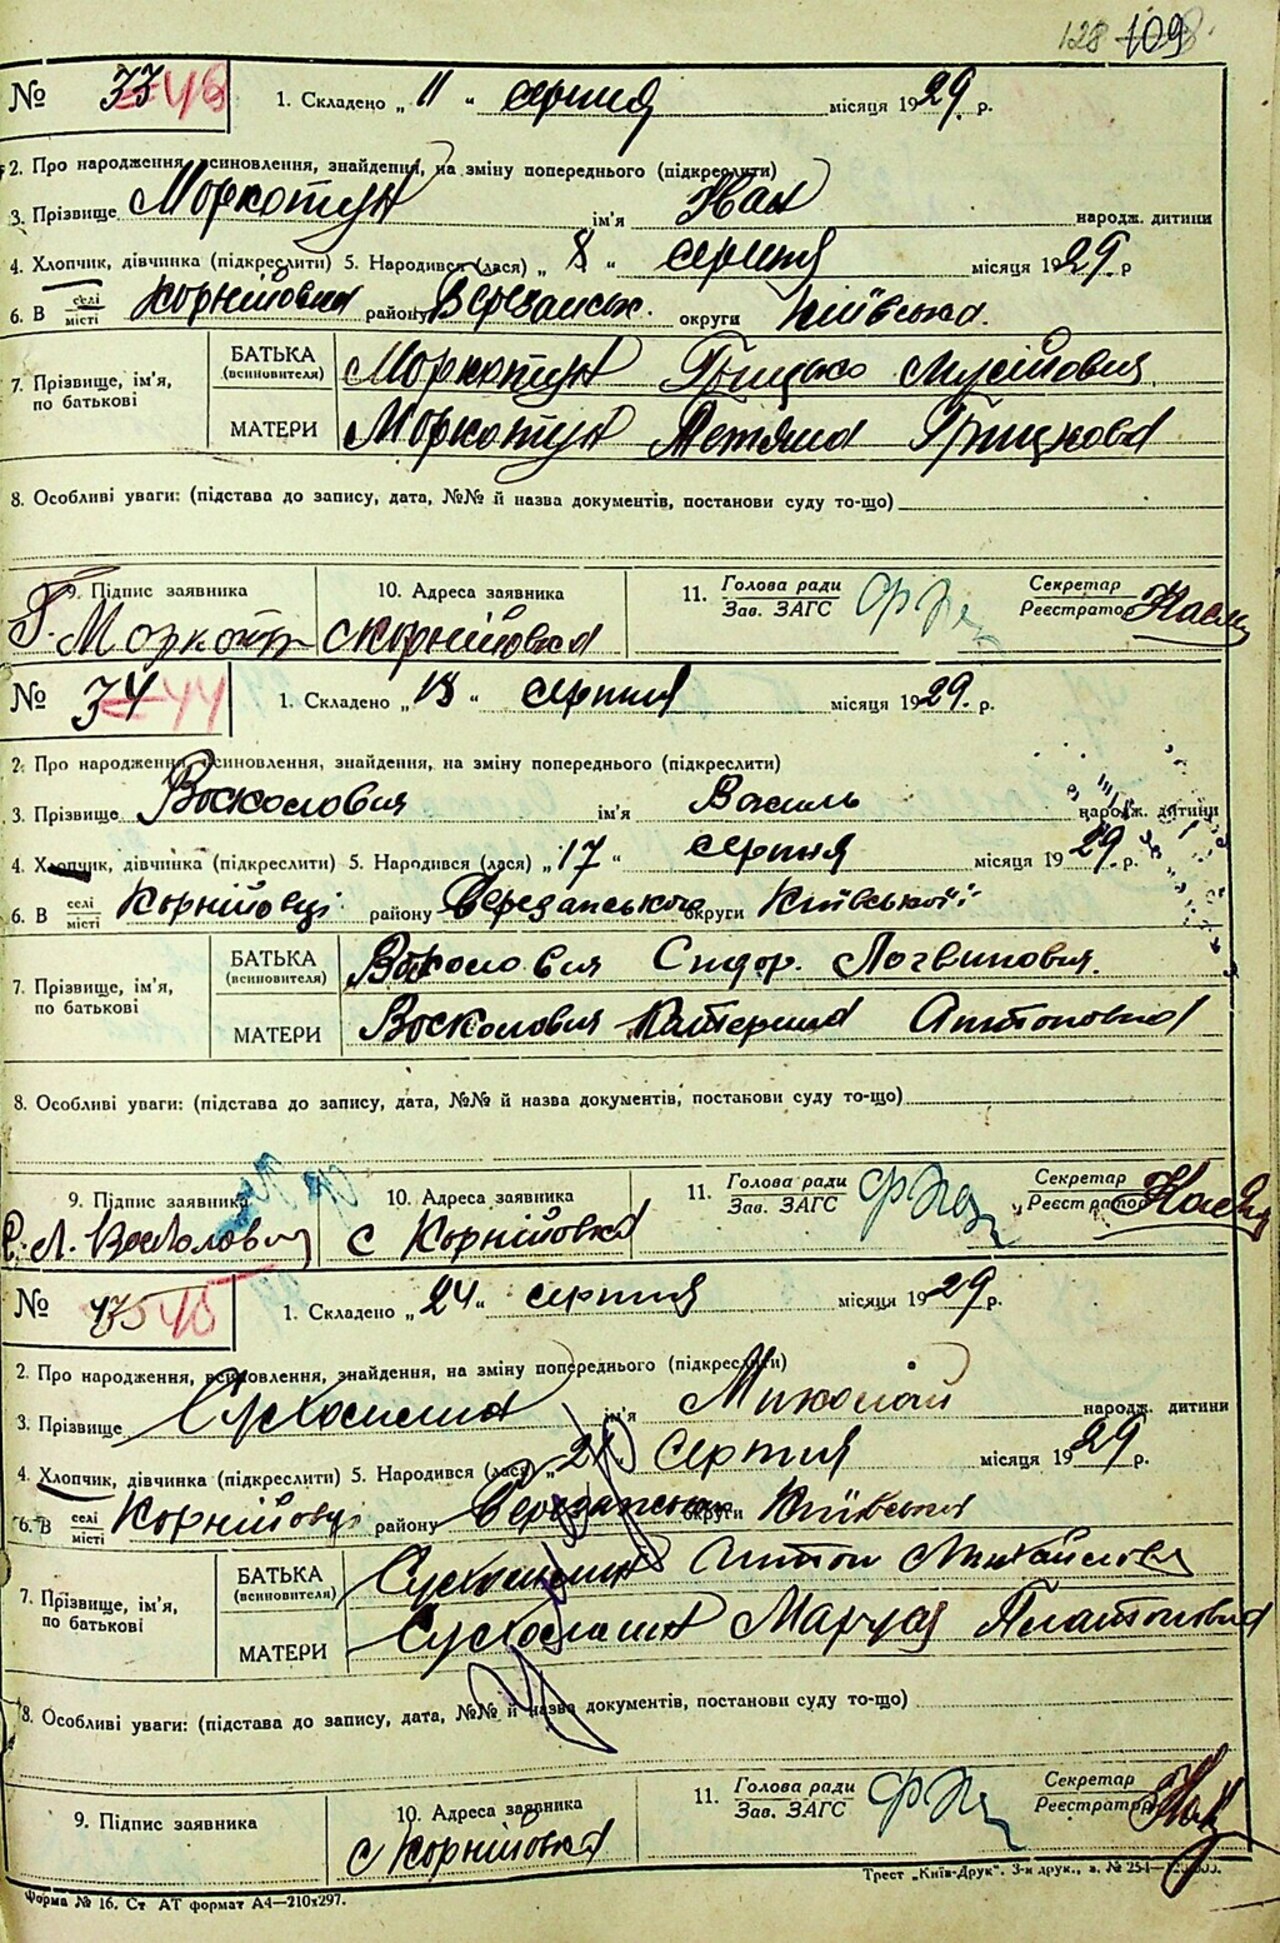 128 109
№ 33 43 1. Складено „ 11 “ серпня місяця 1929 р.
2. Про народження, всиновлення, знайдення, на зміну попереднього (підкреслити)
3. Прізвище Моркотун ім'я Іван народж. дитини
4. Хлопчик, дівчинка (підкреслити) 5. Народився (лася) „ 8 “ серпня місяця 1929 р
6. В селі місті Корніївка району Березанськ. округи Київська.
7. Прізвище, ім'я, по батькові БАТЬКА (всиновителя) Моркотун Грицько Мусійович
МАТЕРИ Моркотун Тетяна Грицькова
8. Особливі уваги: (підстава до запису, дата, №№ й назва документів, постанови суду то-що)
9. Підпис заявника 10. Адреса заявника 11. Голова ради Зав. ЗАГС Секретар Реєстратор
Г. Моркотун с Корніївка
№ 34 44 1. Складено „ 18 “ серпня місяця 1929. р.
2. Про народження, всиновлення, знайдення, на зміну попереднього (підкреслити)
3. Прізвище Восколович ім'я Василь народж. дитини
4. Хлопчик, дівчинка (підкреслити) 5. Народився (лася) „ 17 “ серпня місяця 1929 р.
6. В селі місті Корніївці району Березанського округи Київської
7. Прізвище, ім'я, по батькові БАТЬКА (всиновителя) Восколович Сидор. Логвинович.
МАТЕРИ Восколович Катерина Антоновна
8. Особливі уваги: (підстава до запису, дата, №№ й назва документів, постанови суду то-що)
9. Підпис заявника 10. Адреса заявника 11. Голова ради Зав. ЗАГС Секретар Реєстратор
С. Л. Восколович с Корніївка
№ 35 45 1. Складено „ 24 “ серпня місяця 1929 р.
2. Про народження, всиновлення, знайдення, на зміну попереднього (підкреслити)
3. Прізвище ім'я Миколай народж. дитини
4. Хлопчик, дівчинка (підкреслити) 5. Народився (лася) „ серпня місяця 1929 р.
6. В селі місті Корніївці району Березанськ округи Київська
7. Прізвище, ім'я, по батькові БАТЬКА (всиновителя) Антон Михайлович
МАТЕРИ Маруся Платоновна
8. Особливі уваги: (підстава до запису, дата, №№ й назва документів, постанови суду то-що)
9. Підпис заявника 10. Адреса заявника 11. Голова ради Зав. ЗАГС Секретар Реєстратор
с Корніївка
Трест „Київ-Друк“. 3-я друк., з. № 251—
Форма № 16. Ст АТ формат А4—210x297.